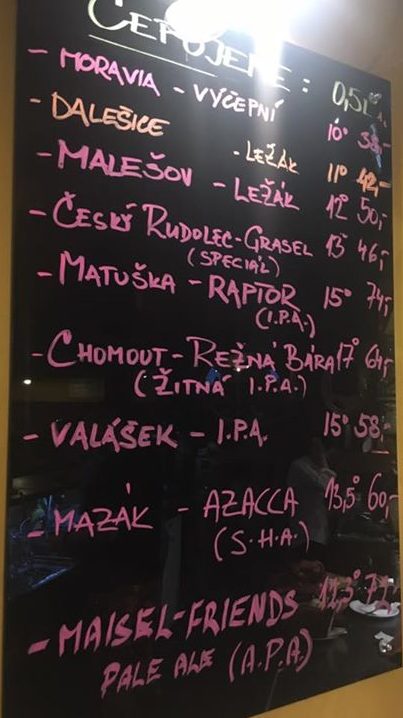 ČEPUJEME: 0,5L
- MORAVIA - VÝČEPNÍ 10° 38,-
- DALEŠICE - LEŽÁK 11° 42,-
- MALEŠOV - LEŽÁK 12° 50,-
- ČESKÝ RUDOLEC-GRASEL 13° 46,-
(SPECIÁL)
- MATUŠKA - RAPTOR 15° 74,-
(I.P.A.)
- CHOMOUT - REŽNÁ BÁRA 17° 64,-
(ŽITNÁ I.P.A.)
- VALÁŠEK - I.P.A. 15° 58,-
- MAZÁK - AZACCA 13,5° 60,-
(S.H.A.)
- MAISEL-FRIENDS
PALE ALE (A.P.A.)